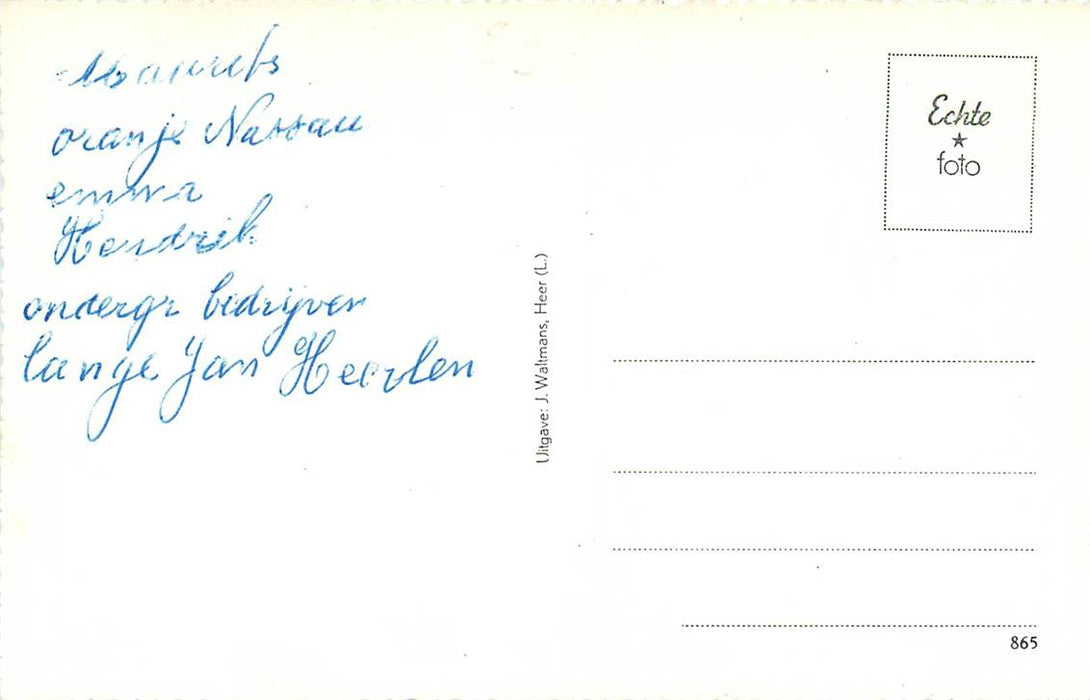 Maurits
oranje Nassau
emma
Hendrik
ondergr bedrijven
lange Jan Heerlen
Uitgave: J. Waltmans, Heer (L.)
Echte
foto
865